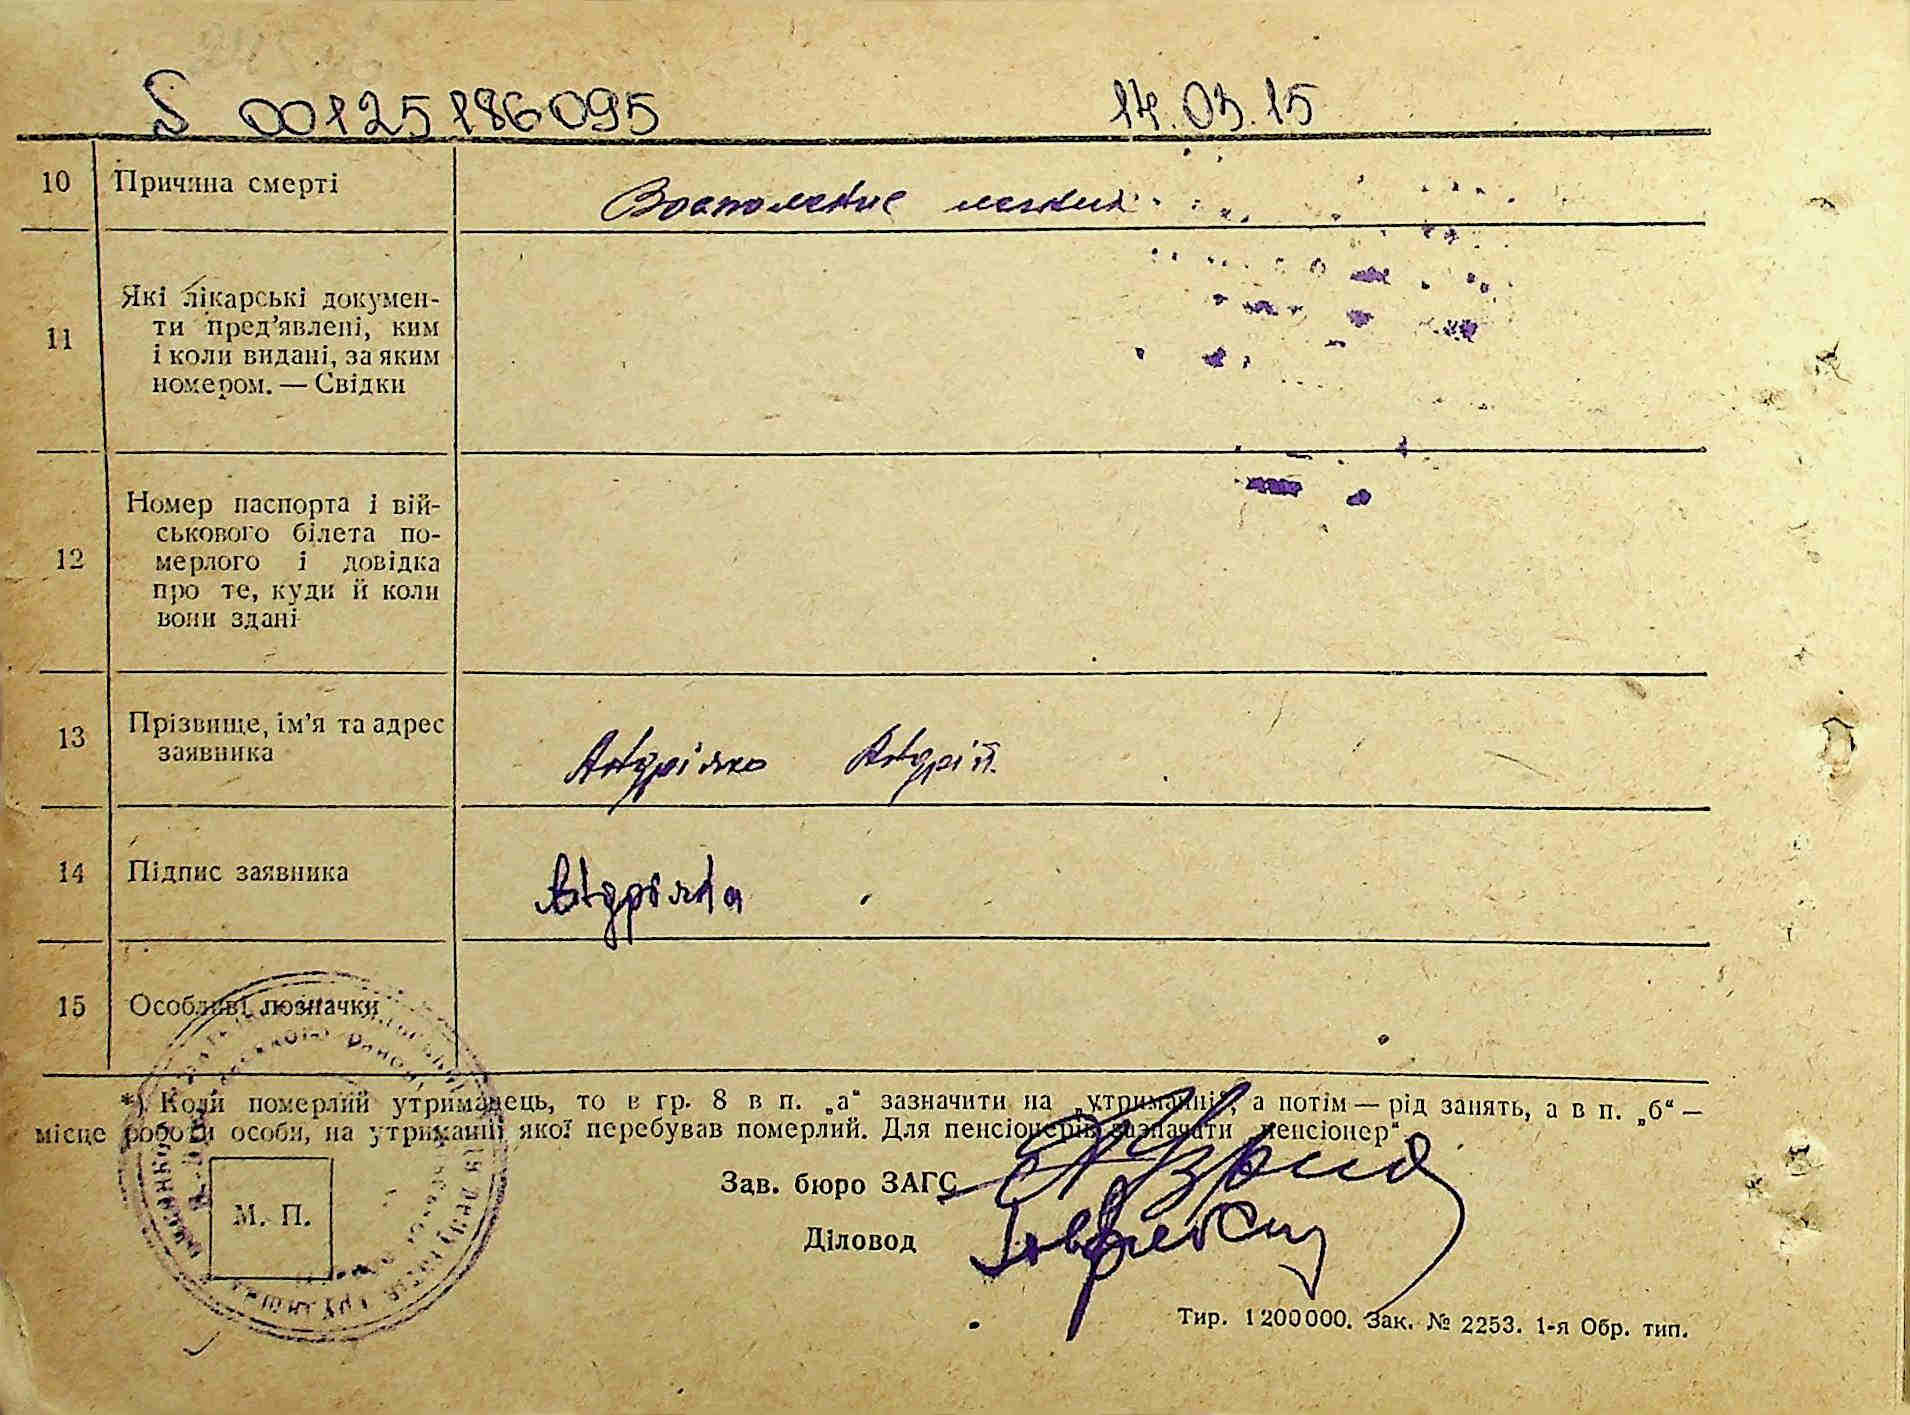 S 00125186095 14.03.15
10 Причина смерті Воспаление легких
11 Які лікарські докумен-
ти пред’явлені, ким
і коли видані, за яким
номером. — Свідки
12 Номер паспорта і вій-
ськового білета по-
мерлого і довідка
про те, куди й коли
вони здані
13 Прізвище, ім’я та адрес
заявника
Андріяко Андрій.
14 Підпис заявника
15 Особливі позначки
*) Коли померлий утриманець, то в гр. 8 в п. „а“ зазначити на „утриманні“, а потім — рід занять, а в п. „б“ —
місце роботи особи, на утриманні якої перебував померлий. Для пенсіонерів зазначати „пенсіонер“.
Зав. бюро ЗАГС
Діловод
М. П.
Тир. 1 200 000. Зак. № 2253. 1-я Обр. тип.